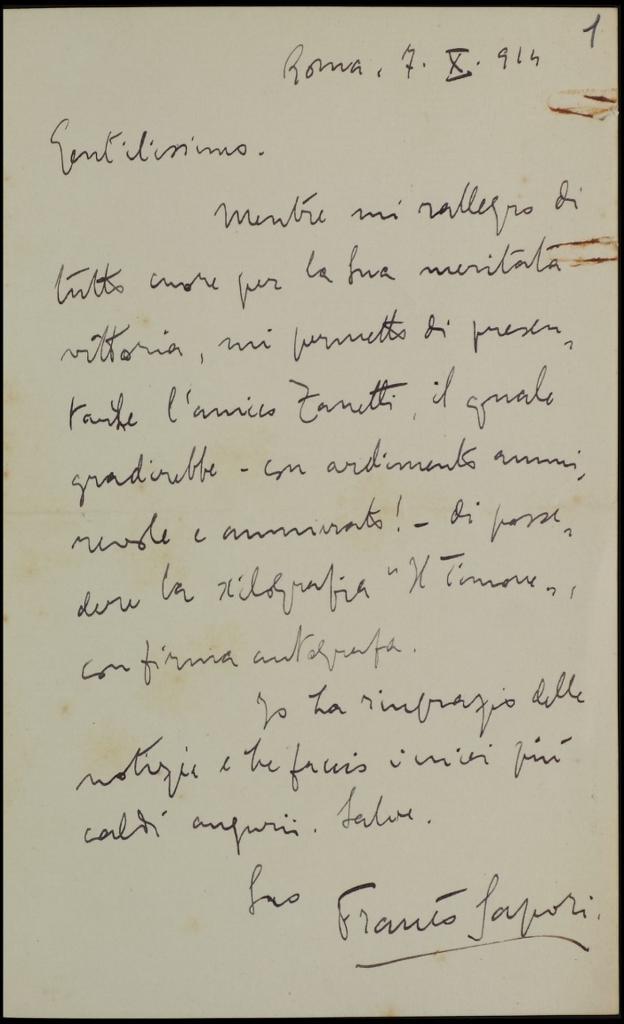 1
Roma, 7. X. 914
Gentilissimo.
Mentre mi rallegro di
tutto cuore per la Sua meritata
vittoria, mi permetto di presen-
tarLe l'amico Zanetti, il quale
gradirebbe - con ardimento ammi-
revole e ammirato! - di posse-
dere la xilografia "Il Timone",
con firma autografa.
Io La ringrazio delle
notizie e Le faccio i miei più
caldi auguri. Salve.
Suo Francesco Sapori.